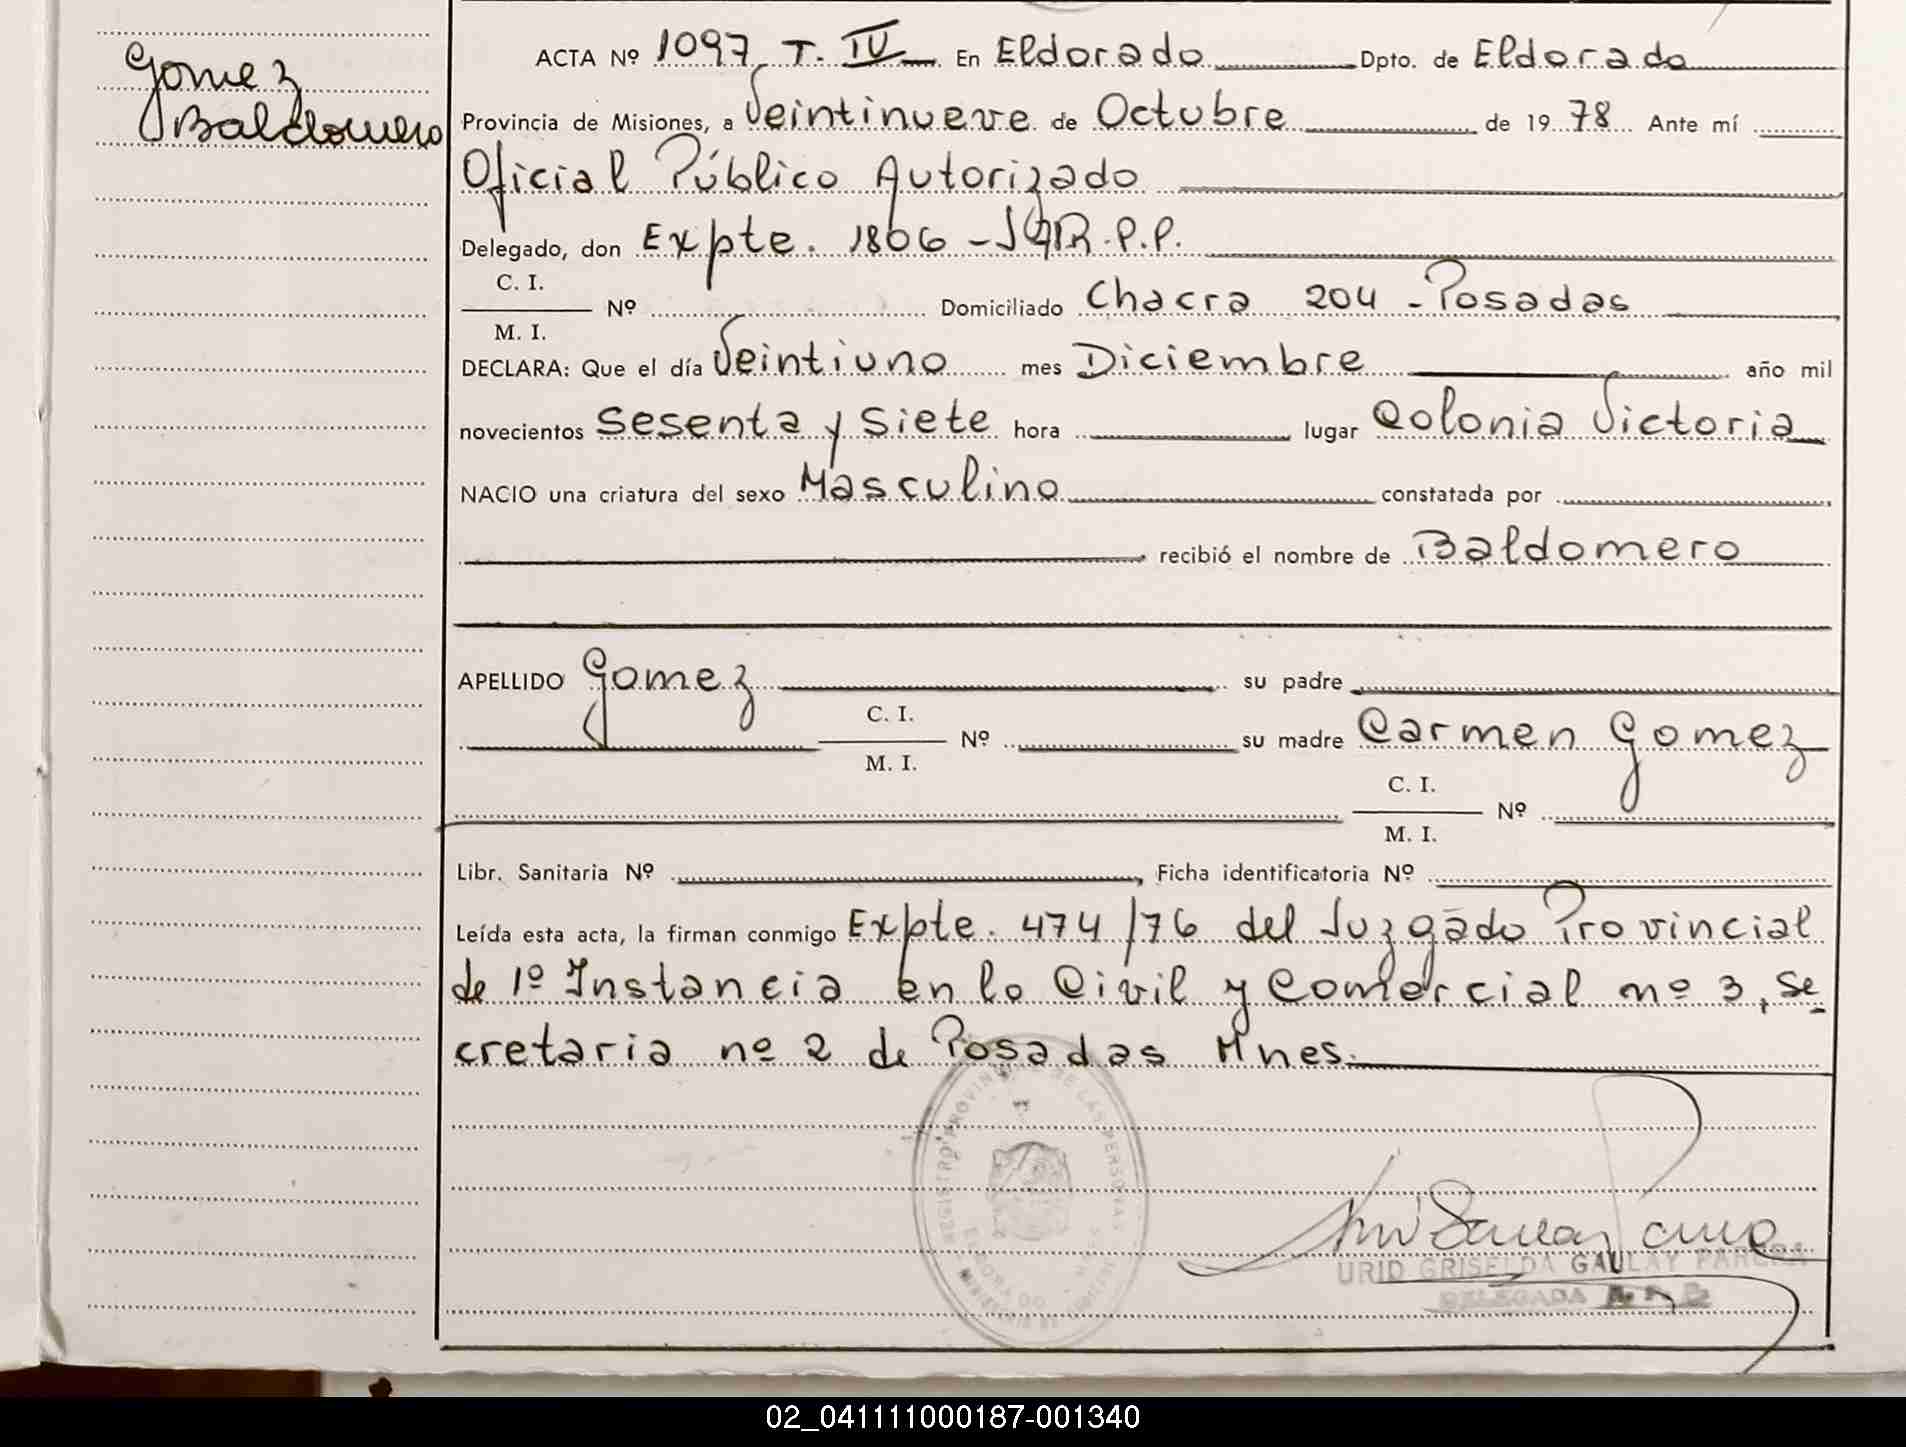 Gomez
Baldomero
ACTA Nº 1097 T. IV En Eldorado Dpto. de Eldorado
Provincia de Misiones, a Veintinueve de Octubre de 1978 Ante mí
Oficial Público Autorizado
Delegado, don Expte. 1806 - J.G.R.P.P.
C. I.
Nº Domiciliado Chacra 204 - Posadas
M. I.
DECLARA: Que el día Veintiuno mes Diciembre año mil
novecientos sesenta y siete hora lugar Colonia Victoria
NACIO una criatura del sexo Masculino constatada por
recibió el nombre de Baldomero
APELLIDO Gomez su padre
C. I.
Nº su madre Carmen Gomez
M. I.
C. I.
Nº
M. I.
Libr. Sanitaria Nº , Ficha identificatoria Nº
Leída esta acta, la firman conmigo Expte. 474/76 del Juzgado Provincial
de 1º Instancia en lo Civil y Comercial nº 3, Se
cretaria nº 2 de Posadas Mnes.
REGISTRO PROVINCIAL DE LAS PERSONAS
ELDORADO
URID GRISELDA GAULAY PARERA
DELEGADA
02_041111000187-001340